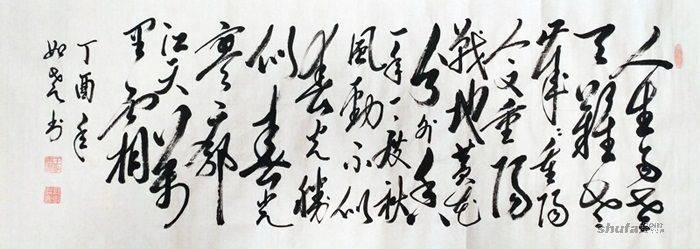 人生易老
天難老
歲々重陽
今又重陽
戰地黃花
分外香
一年一度秋
風勁不似
春光勝
似春光
寥廓
江天萬
里霜
丁酉年
如 书